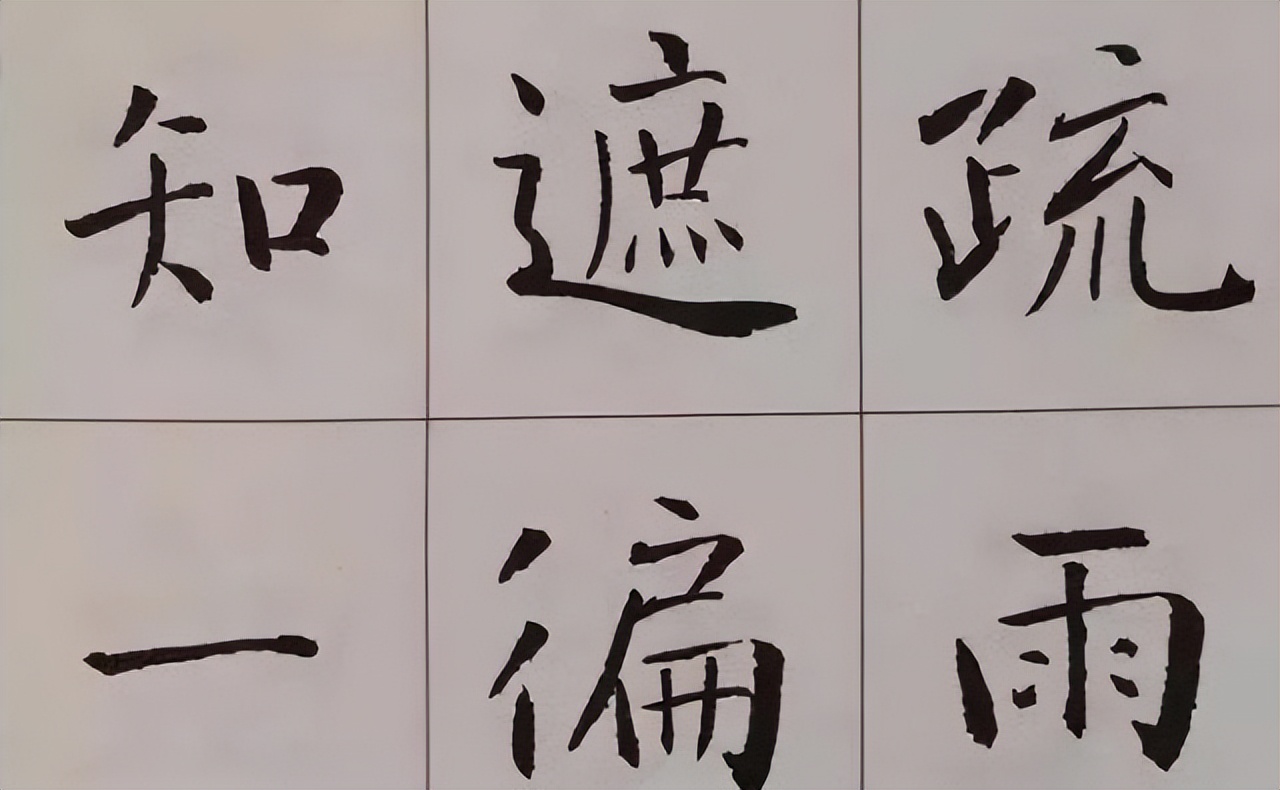 疏雨
遮徧
知一